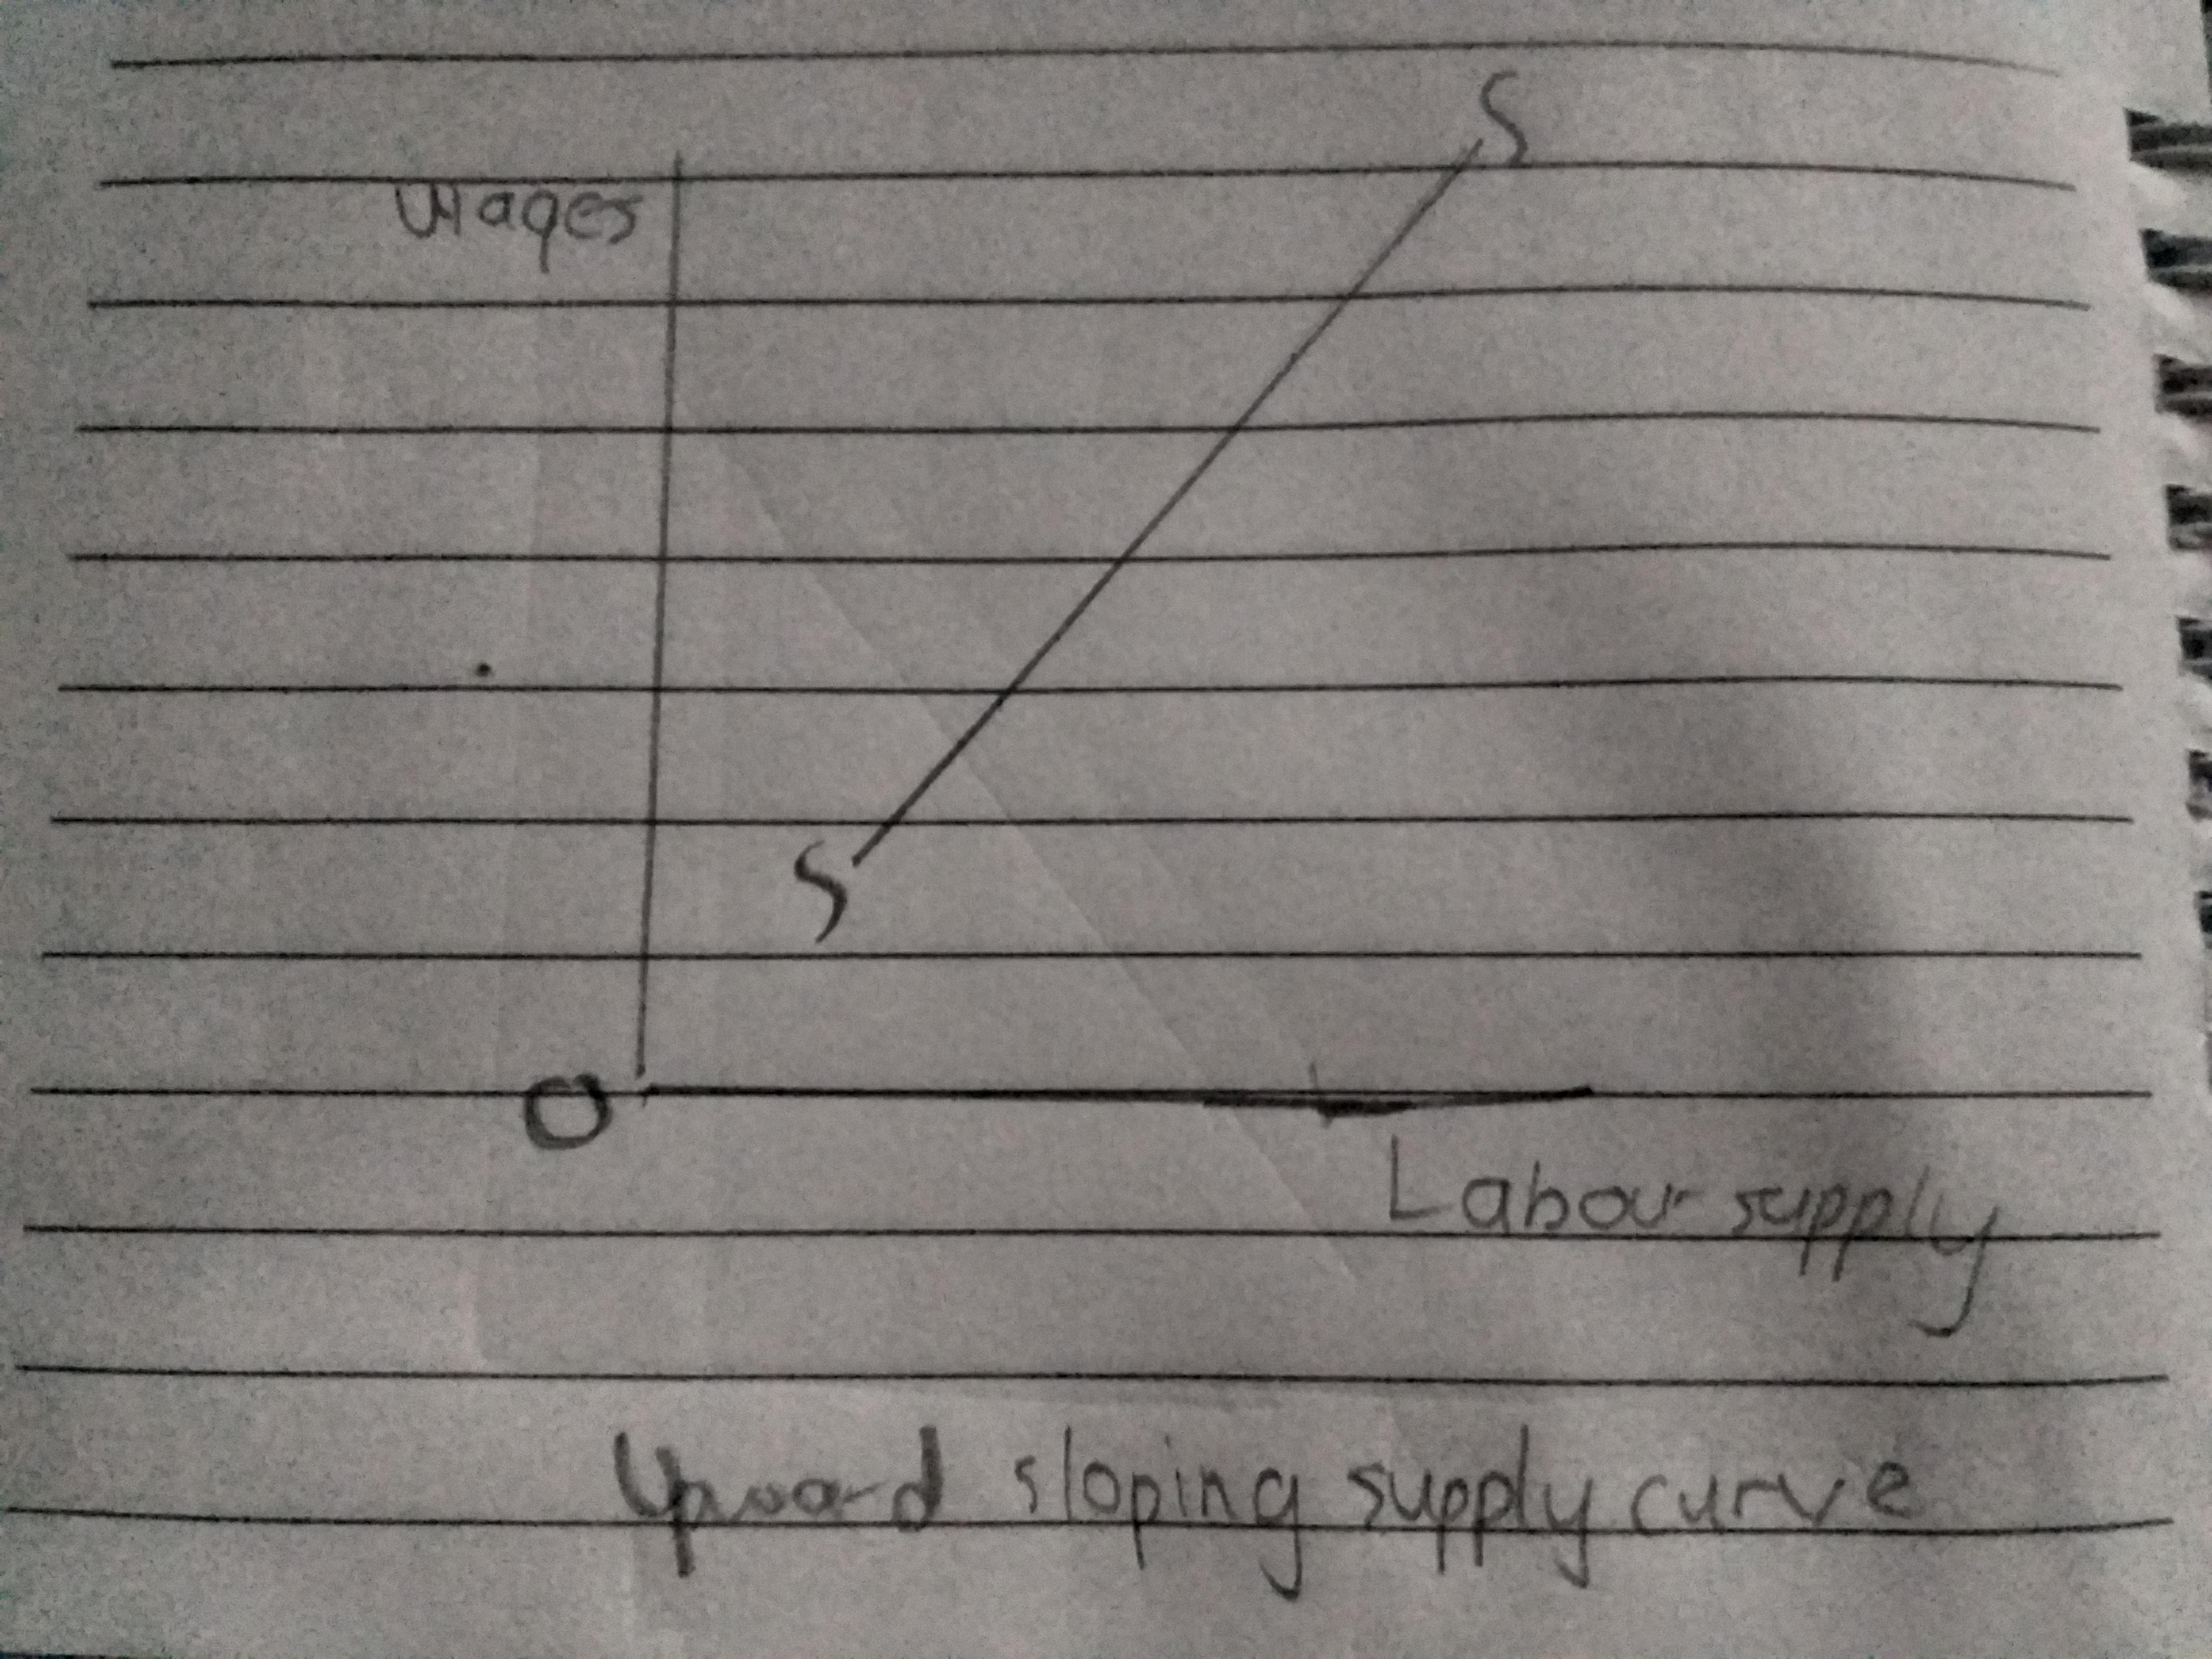 S
Wages
S
O
Labour supply
Upward sloping supply curve